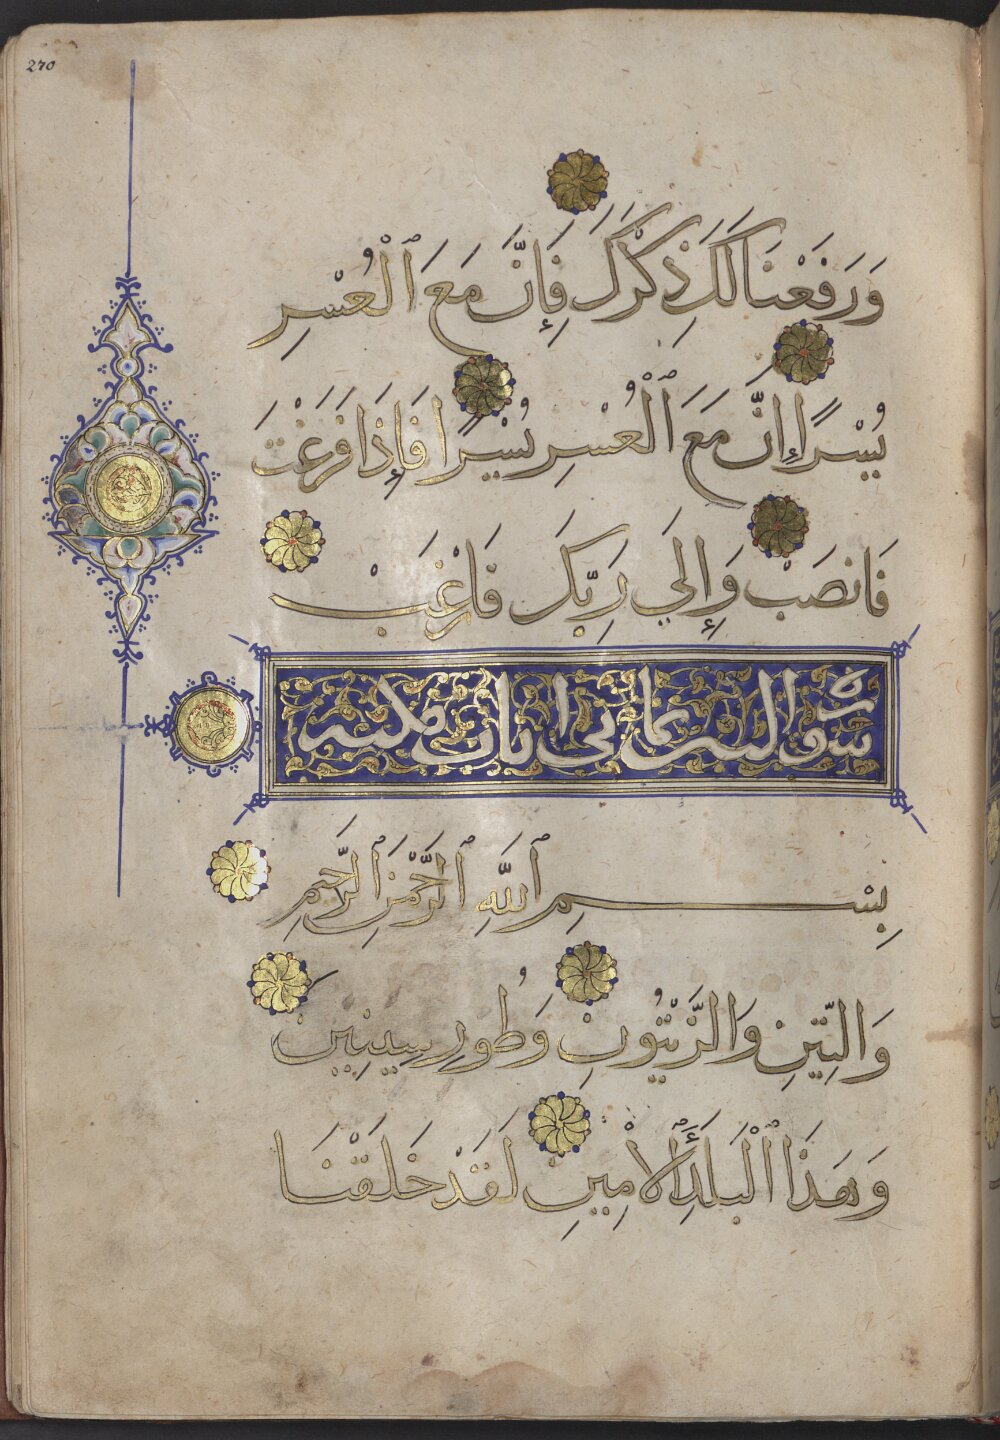 270
وَرَفَعْنَا لَكَ ذِكْرَكَ فَإِنَّ مَعَ ٱلْعُسْرِ
يُسْرًا إِنَّ مَعَ ٱلْعُسْرِ يُسْرًا فَإِذَا فَرَغْتَ
فَانصَبْ وَإِلَي رَبِّكَ فَارْغَبْ
سورة التين ثماني ايات مكية
بِسْمِ ٱللَّهِ ٱلرَّحْمَٰنِ ٱلرَّحِيمِ
وَالتِّينِ وَالزَّيْتُونِ وَطُورِ سِينِينَ
وَهَذَا ٱلْبَلَدِ ٱلْأَمِينِ لَقَدْ خَلَقْنَا